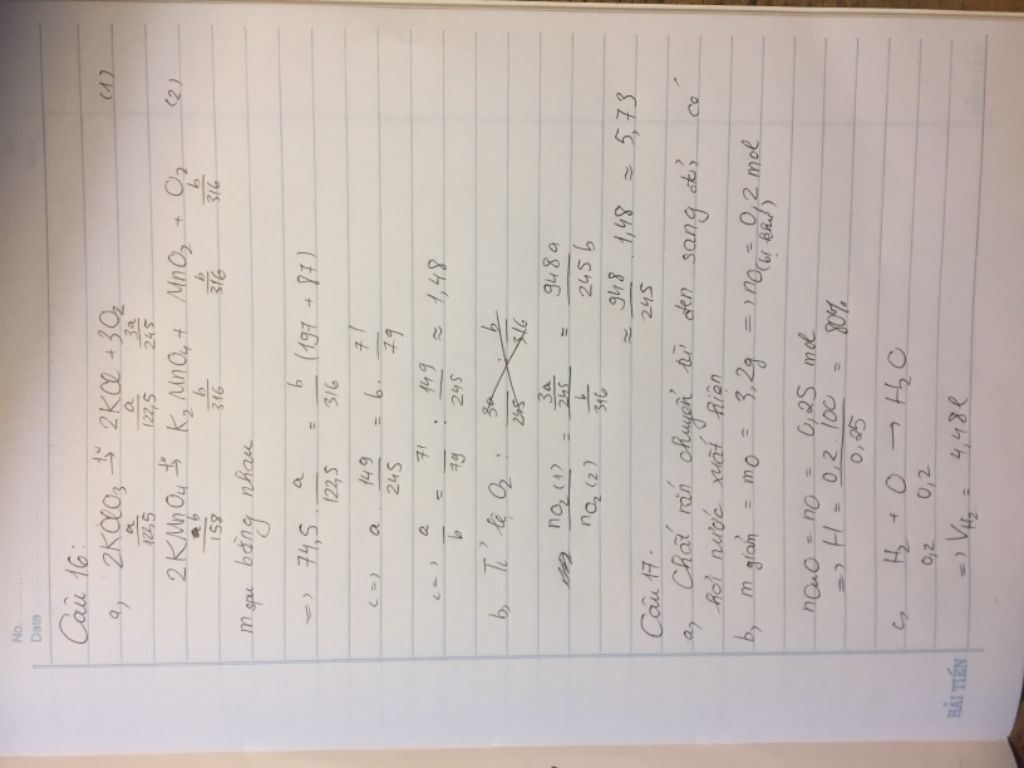 No.
Date
Câu 16:
a, 2KClO3 t° → 2KCl + 3O2 (1)
a/122,5 a/122,5 3a/245
2KMnO4 t° → K2MnO4 + MnO2 + O2 (2)
b/158 b/316 b/316 b/316
m sau bằng nhau
=> 74,5 . a/122,5 = b/316 (197 + 87)
<=> a . 149/245 = b . 71/79
<=> a/b = 71/79 : 149/245 ≈ 1,48
b, Tỉ lệ O2 : 3a/245 . b/316
nO2 (1)/nO2 (2) = (3a/245)/(b/316) = 948a/245b
≈ 948/245 . 1,48 ≈ 5,73
Câu 17.
a, Chất rắn chuyển từ đen sang đỏ, có
hơi nước xuất hiện
b, m giảm = mO = 3,2g => nO (bị khử) = 0,2 mol
nCuO = nO = 0,25 mol
=> H = 0,2 . 100/0,25 = 80%
c, H2 + O → H2O
0,2 0,2
=> VH2 = 4,48l
HẢI TIẾN